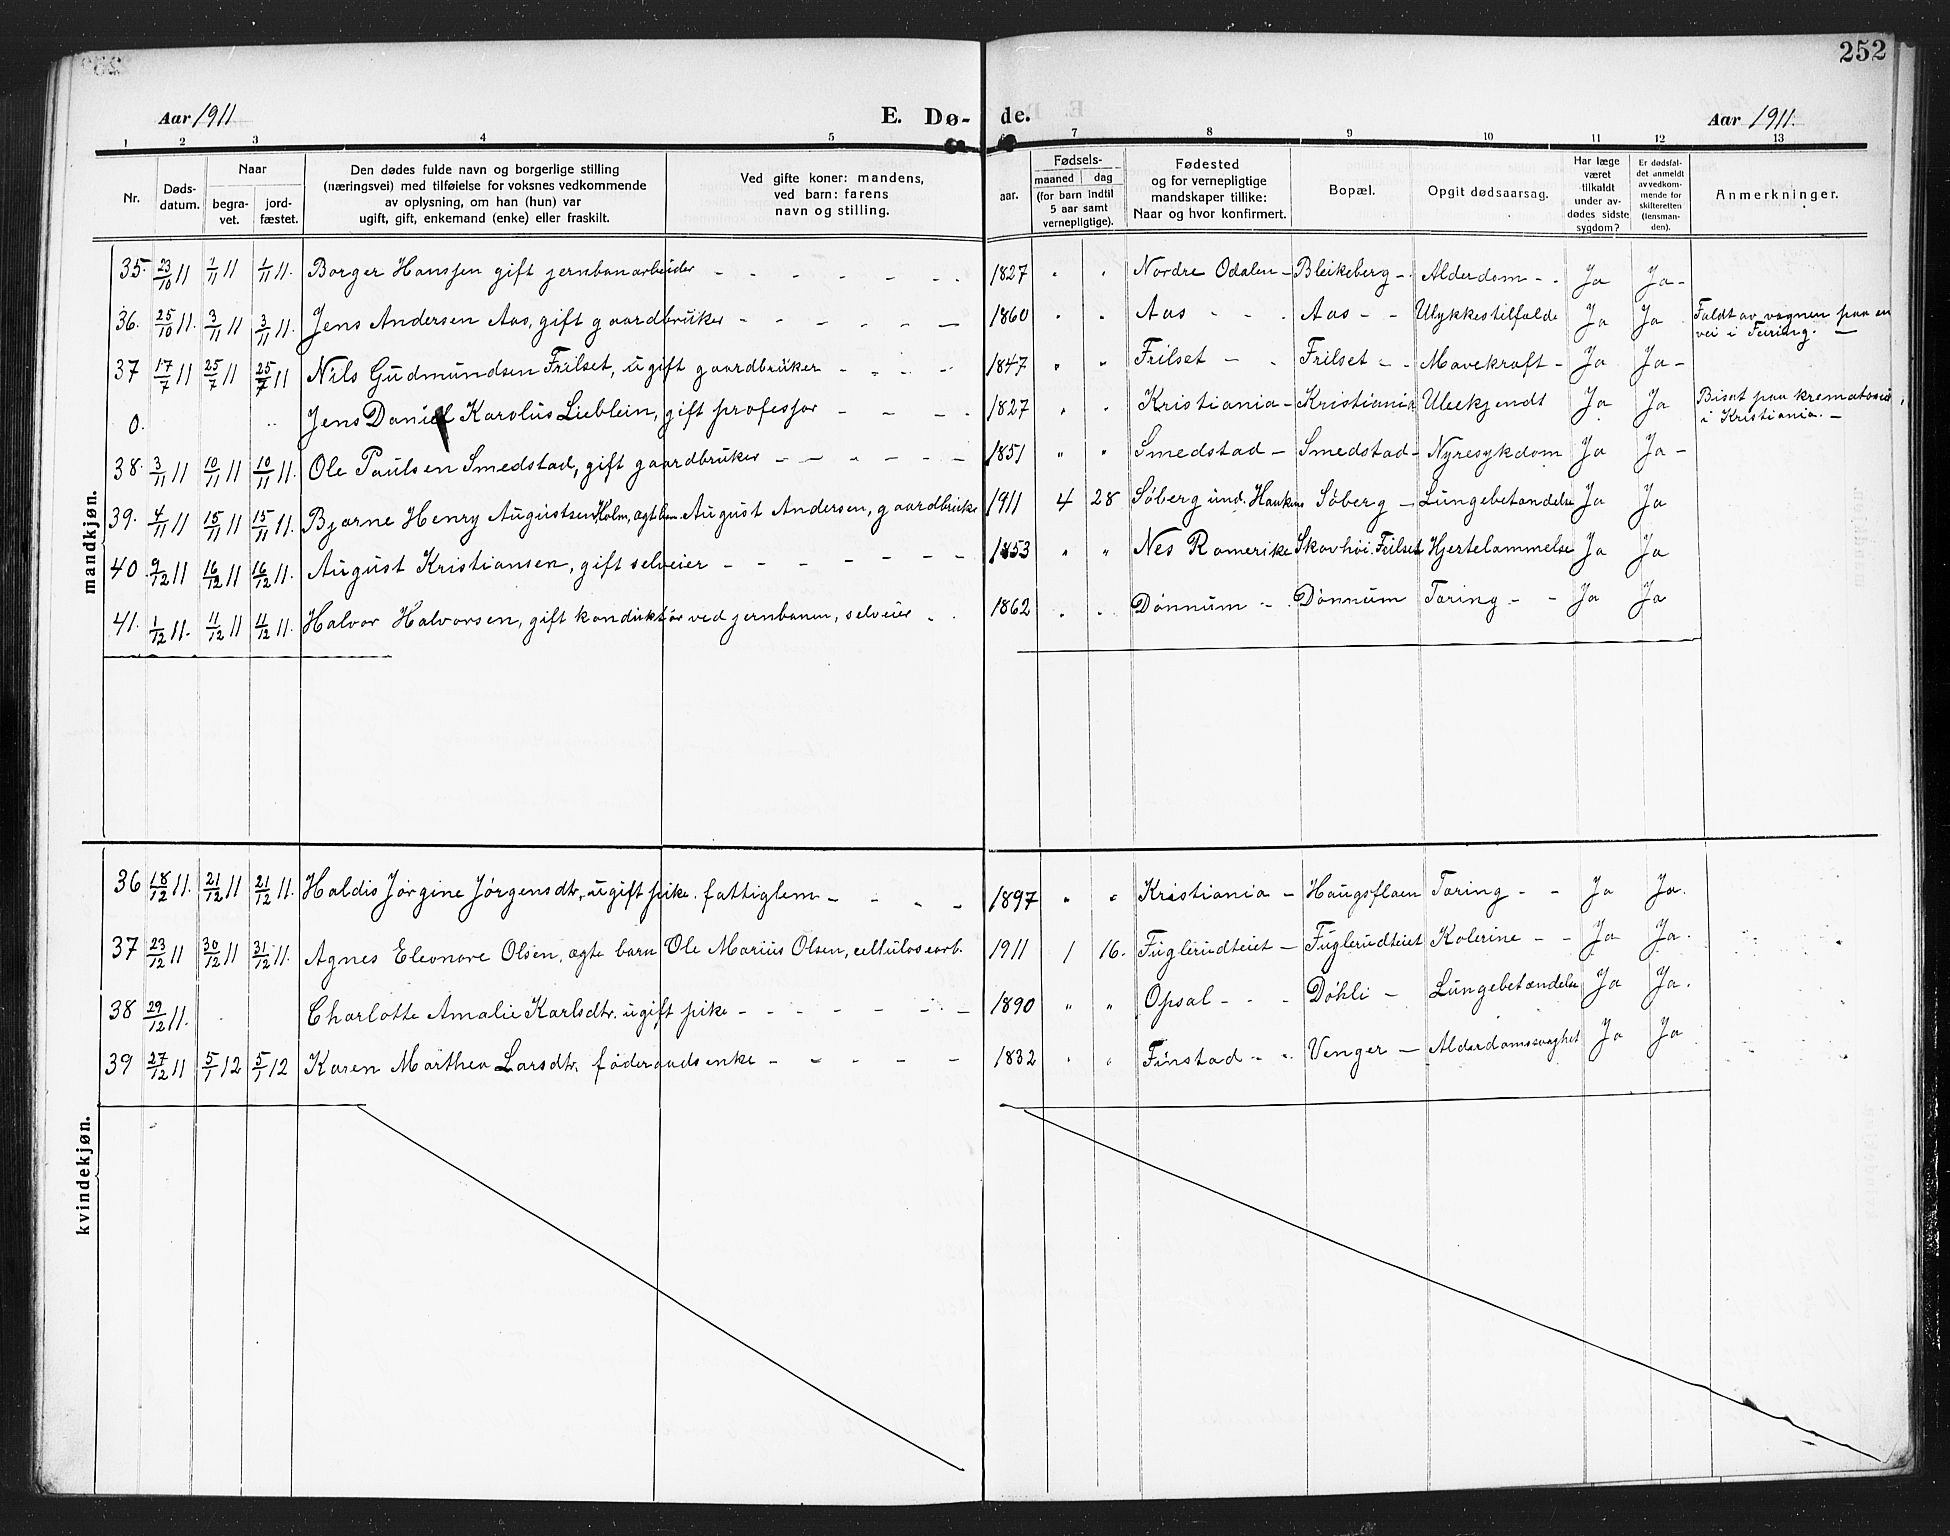 252
Aar 1911
E. Dø- de.
Aar 1911.
1 2 3 4 5 7 8 9 10 11 12 13
Nr.
Døds-
datum.
Naar
begra-
vet.
jord-
fæstet.
Den dødes fulde navn og borgerlige stilling
(næringsvei) med tilføielse for voksnes vedkommende
av oplysning, om han (hun) var
ugift, gift, enkemand (enke) eller fraskilt.
Ved gifte koner: mandens,
ved barn: farens
navn og stilling.
Fødsels-
aar.
maaned dag
(for barn indtil
5 aar samt
vernepligtige).
Fødested
og for vernepligtige
mandskaper tillike:
Naar og hvor konfirmert.
Bopæl.
Opgit dødsaarsag.
Har læge
været
tilkaldt
under av-
dødes sidste
sygdom?
Er dødsfal-
det anmeldt
av vedkom-
mende for
skifteretten
(lensman-
den).
Anmerkninger.
mandkjøn.
35. 23/10 11 1/11 11 1/11 11. Borger Hanssen gift jernbanarbeider - - - - - - 1827 " " Nordre Odalen - Bleikeberg - Alderdom - - Ja Ja -
36. 25/10 11. 3/11 11 3/11 11. Jens Andersen Aas, gift gaardbruker - - - - - - 1860 " " Aas - - - Aas - - Ulykkestilfalde Ja Ja Faldt av vognen paa en
vei i Feiring. -
37 17/7 11 25/7 11 25/7 11 Nils Gudmundsen Frilset, ugift gaardbruker - - - - 1847 " " Frilset - - Frilset - - Mavekraft - Ja Ja -
0. " Jens Daniel Karolus Lieblein, gift professor - - - - 1827 " " Kristiania - Kristiania Ubekjendt Ja Ja Bisat paa krematoriet
i Kristiania. -
38. 3/11 11 10/11 11 10/11 11. Ole Paulsen Smedstad, gift gaardbruker - - - - - - 1851 " " Smedstad - Smedstad - Nyresykdom Ja Ja -
39. 4/11 11 15/11 11 15/11 11. Bjarne Henry Augustsen Holm, ægt. barn. August Andersen, gaardbruker 1911 4 28 Søberg und. Haukenes Søberg - Lungebetændelse Ja Ja
40 9/12 11 16/12 11 16/12 11. August Kristiansen, gift selveier - - - - - - 1853 " " Nes Romerike Skovhøi. Frilset Hjertelammelse Ja Ja
41. 1/12 11. 11/12 11 11/12 11. Halvor Halvorsen, gift konduktør ved jernbanen, selveier - . 1862 . . Dønnum - - Dønnum Tæring - - Ja Ja
kvindekjøn.
36 18/12 11. 21/12 11 21/12 11. Haldis Jørgine Jørgensdtr., ugift pike. fattiglem - - - - 1897 " " Kristiania - Haugsflaen Tæring - - Ja Ja.
37 23/12 11 30/12 11 31/12 11. Agnes Eleonore Olsen, ægte barn Ole Marius Olsen, cellulosearb. 1911 1 16. Fuglerudteiet - Fuglerudteiet Kolerine - - Ja Ja.
38 29/12 11. Charlotte Amalie Karlsdtr. ugift pike - - - - - - - 1890 " " Opsal - - - Døhli - Lungebetændelse Ja Ja.
39 27/12 11 5/1 12 5/1 12 Karen Marthea Larsdtr. føderaadsenke - - - - - 1832 " " Finstad - - Venger - Alderdomssvaghet Ja Ja